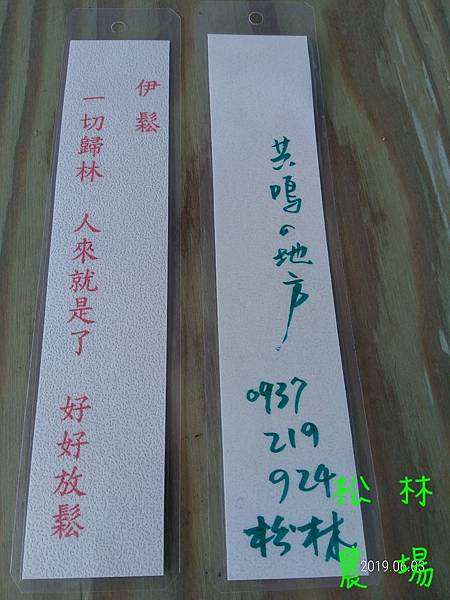 伊鬆
一切歸林 人來就是了 好好放鬆
共鳴の地方
0937
219
924
松林
松林
農場
2019.06.03